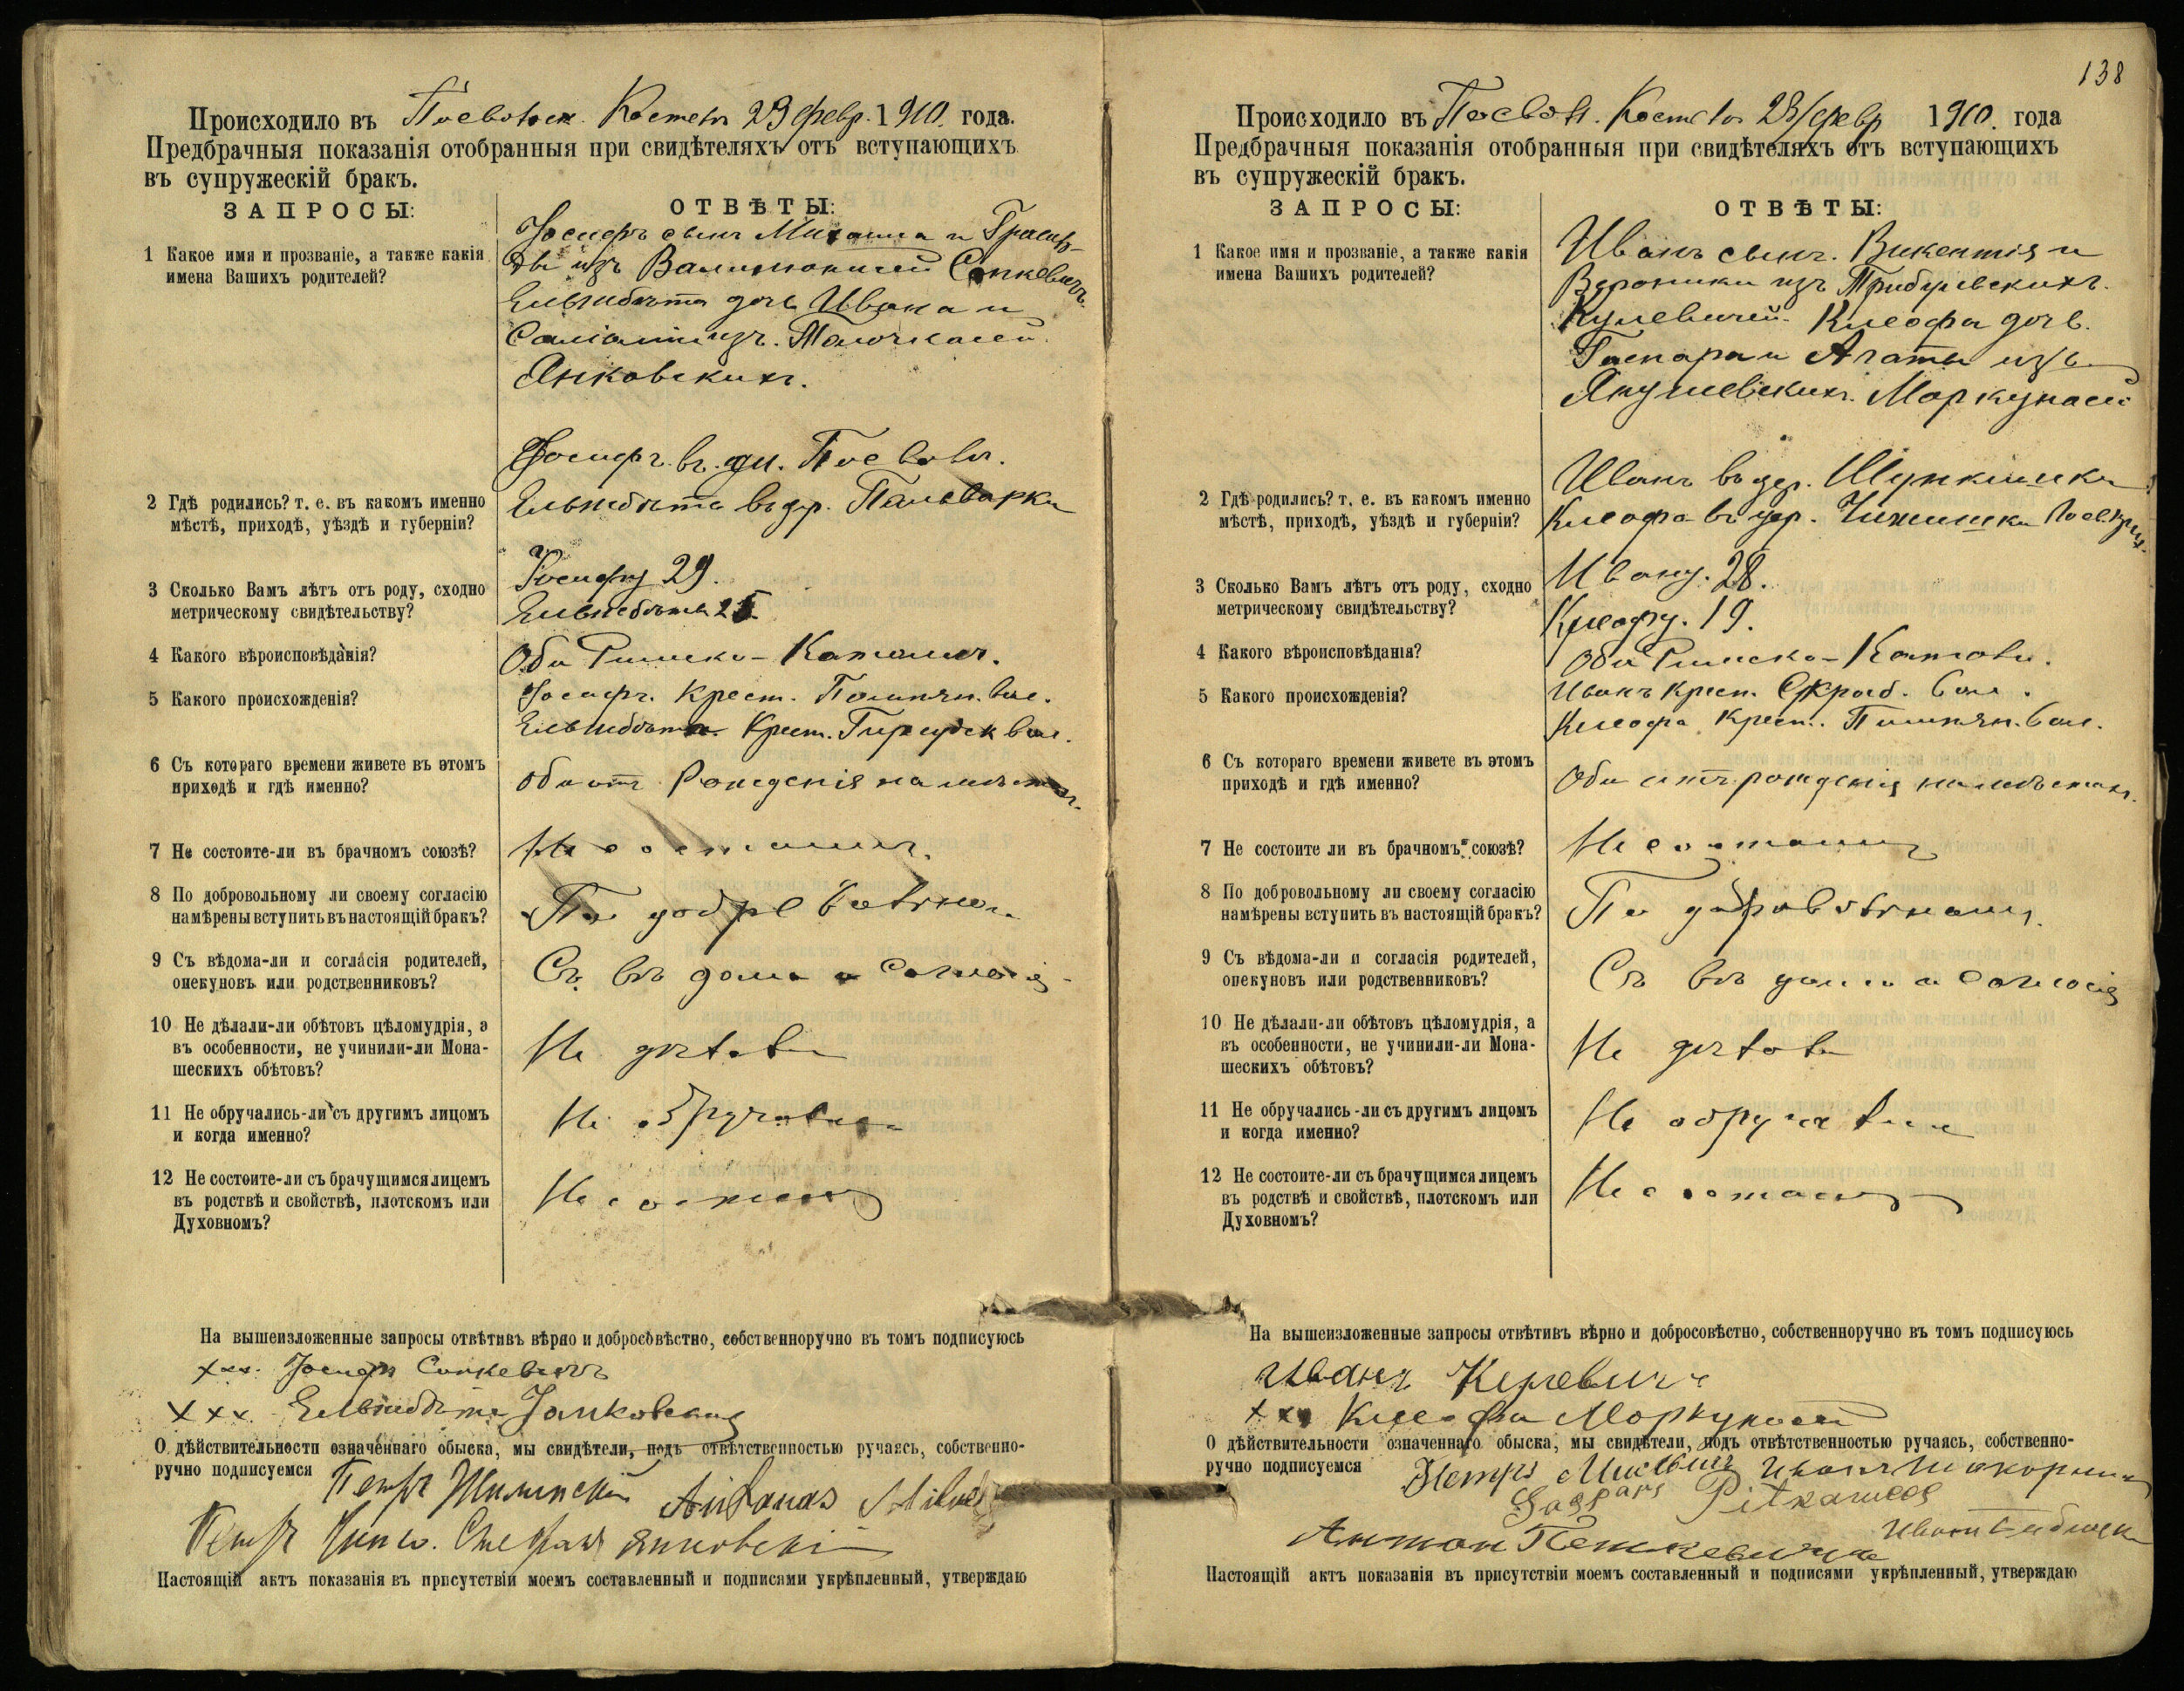 Происходило въ Посвольск. Костелѣ 23 февр. 1910. года.
Предбрачныя показанія отобранныя при свидѣтеляхъ отъ вступающихъ
въ супружескій бракъ.
ЗАПРОСЫ:
ОТВѢТЫ:
1 Какое имя и прозваніе, а также какія
имена Вашихъ родителей?
Іосифъ сынъ Михаила и
изъ Сипкевичъ
Ельжбѣта дочь Ивана и
изъ
Янковскихъ.
2 Гдѣ родились? т. е. въ какомъ именно
мѣстѣ, приходѣ, уѣздѣ и губерніи?
Іосифъ въ им. Посволь.
Ельжбѣта въ дер. Пальварки
3 Сколько Вамъ лѣтъ отъ роду, сходно
метрическому свидѣтельству?
Іосифу 29.
Ельжбѣта 25
4 Какого вѣроисповѣданія?
Оба Римско-Католич.
5 Какого происхожденія?
Іосифъ Крест. Помпян. вол.
Ельжбѣта Крест. Гирсудск вол.
6 Съ котораго времени живете въ этомъ
приходѣ и гдѣ именно?
Оба отъ Рожденія на мѣстахъ.
7 Не состоите-ли въ брачномъ союзѣ?
Не состоимъ.
8 По добровольному ли своему согласію
намѣрены вступить въ настоящій бракъ?
По добровольному
9 Съ вѣдома-ли и согласія родителей,
опекуновъ или родственниковъ?
Съ вѣдома и согласія
10 Не дѣлали-ли обѣтовъ цѣломудрія, а
въ особенности, не учинили-ли Мона-
шескихъ обѣтовъ?
Не дѣлали
11 Не обручались-ли съ другимъ лицомъ
и когда именно?
Не обручались
12 Не состоите-ли съ брачущимся лицемъ
въ родствѣ и свойствѣ, плотскомъ или
Духовномъ?
Не состоимъ
На вышеизложенные запросы отвѣтивъ вѣрно и добросовѣстно, собственноручно въ томъ подписуюсь
xxx. Іосифъ Сипкевичъ
xxx Ельжбѣта Янковская
О дѣйствительности означеннаго обыска, мы свидѣтели, подъ отвѣтственностью ручаясь, собственно-
ручно подписуемся
Петръ Жилинскій
Петръ Стефанъ Янковскій
Настоящій актъ показанія въ присутствіи моемъ составленный и подписями укрѣпленный, утверждаю
138
Происходило въ Посвол. Костелѣ 23 февр 1910. года
Предбрачныя показанія отобранныя при свидѣтеляхъ отъ вступающихъ
въ супружескій бракъ.
ЗАПРОСЫ:
ОТВѢТЫ:
1 Какое имя и прозваніе, а также какія
имена Вашихъ родителей?
Иванъ сынъ. Викентія и
Вероники изъ
Кулевичей. Клеофа дочь.
Гаспара и Агаты изъ
Янушевскихъ. Моркунасъ
2 Гдѣ родились? т. е. въ какомъ именно
мѣстѣ, приходѣ, уѣздѣ и губерніи?
Иванъ въ дер.
Клеофа въ дер.
3 Сколько Вамъ лѣтъ отъ роду, сходно
метрическому свидѣтельству?
Ивану. 28.
Клеофу. 19.
4 Какого вѣроисповѣданія?
Оба Римско-Католи.
5 Какого происхожденія?
Иванъ Крест. вол.
Клеофа Крест. Помпян. вол.
6 Съ котораго времени живете въ этомъ
приходѣ и гдѣ именно?
Оба отъ рожденія на мѣстахъ.
7 Не состоите ли въ брачномъ союзѣ?
Не состоимъ
8 По добровольному ли своему согласію
намѣрены вступить въ настоящій бракъ?
По добровольному.
9 Съ вѣдома-ли и согласія родителей,
опекуновъ или родственниковъ?
Съ вѣдома и согласія
10 Не дѣлали-ли обѣтовъ цѣломудрія, а
въ особенности, не учинили-ли Мона-
шескихъ обѣтовъ?
Не дѣлали
11 Не обручались-ли съ другимъ лицомъ
и когда именно?
Не обручались
12 Не состоите-ли съ брачущимся лицемъ
въ родствѣ и свойствѣ, плотскомъ или
Духовномъ?
Не состоимъ
На вышеизложенные запросы отвѣтивъ вѣрно и добросовѣстно, собственноручно въ томъ подписуюсь
Иванъ Кулевичъ
xxx Клеофа Моркунасъ
О дѣйствительности означеннаго обыска, мы свидѣтели, подъ отвѣтственностью ручаясь, собственно-
ручно подписуемся
Петръ Иванъ
Антон Петкевичъ Иванъ
Настоящій актъ показанія въ присутствіи моемъ составленный и подписями укрѣпленный, утверждаю